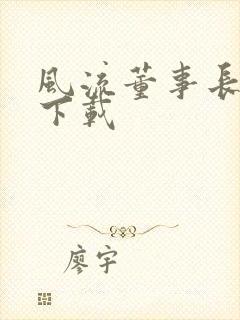 風流董事長
下載
廖宇